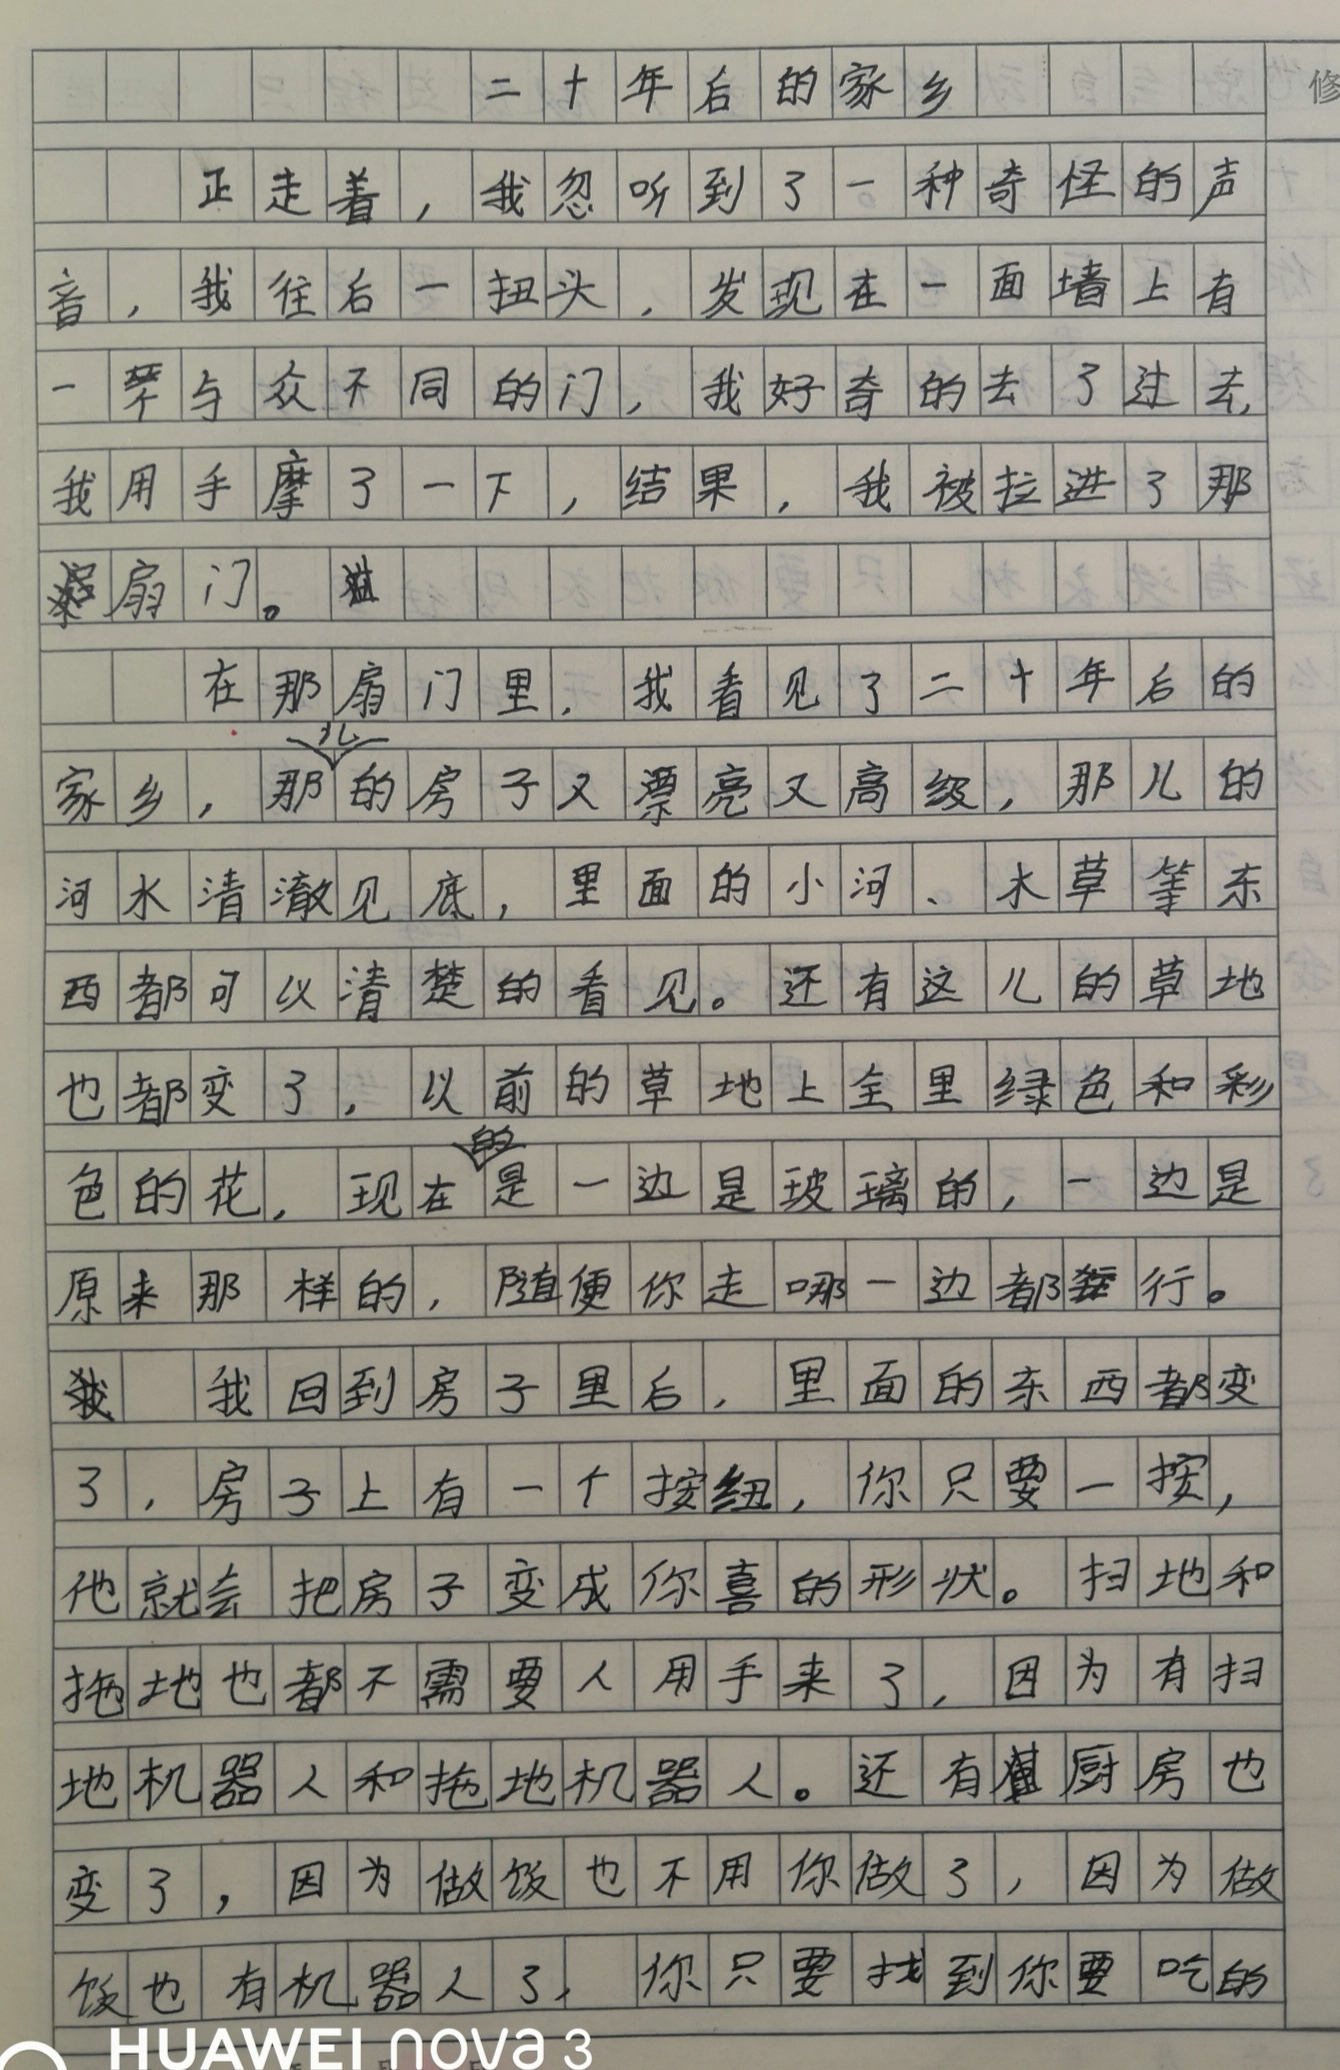 二十年后的家乡
修
正走着，我忽听到了一种奇怪的声
音，我往后一扭头，发现在一面墙上有
一与众不同的门，我好奇的去了过去，
我用手摩了一下，结果，我被拉进了那
扇门。
在那扇门里，我看见了二十年后的
家乡，那儿的房子又漂亮又高级，那儿的
河水清澈见底，里面的小河、水草等东
西都可以清楚的看见。还有这儿的草地
也都变了，以前的草地上全里绿色和彩
色的花，现在的是一边是玻璃的，一边是
原来那样的，随便你走哪一边都行。
我回到房子里后，里面的东西都变
了，房子上有一个按纽，你只要一按，
他就会把房子变成你喜的形状。扫地和
拖地也都不需要人用手来了，因为有扫
地机器人和拖地机器人。还有厨房也
变了，因为做饭也不用你做了，因为做
饭也有机器人了，你只要找到你要吃的
HUAWEI nova 3